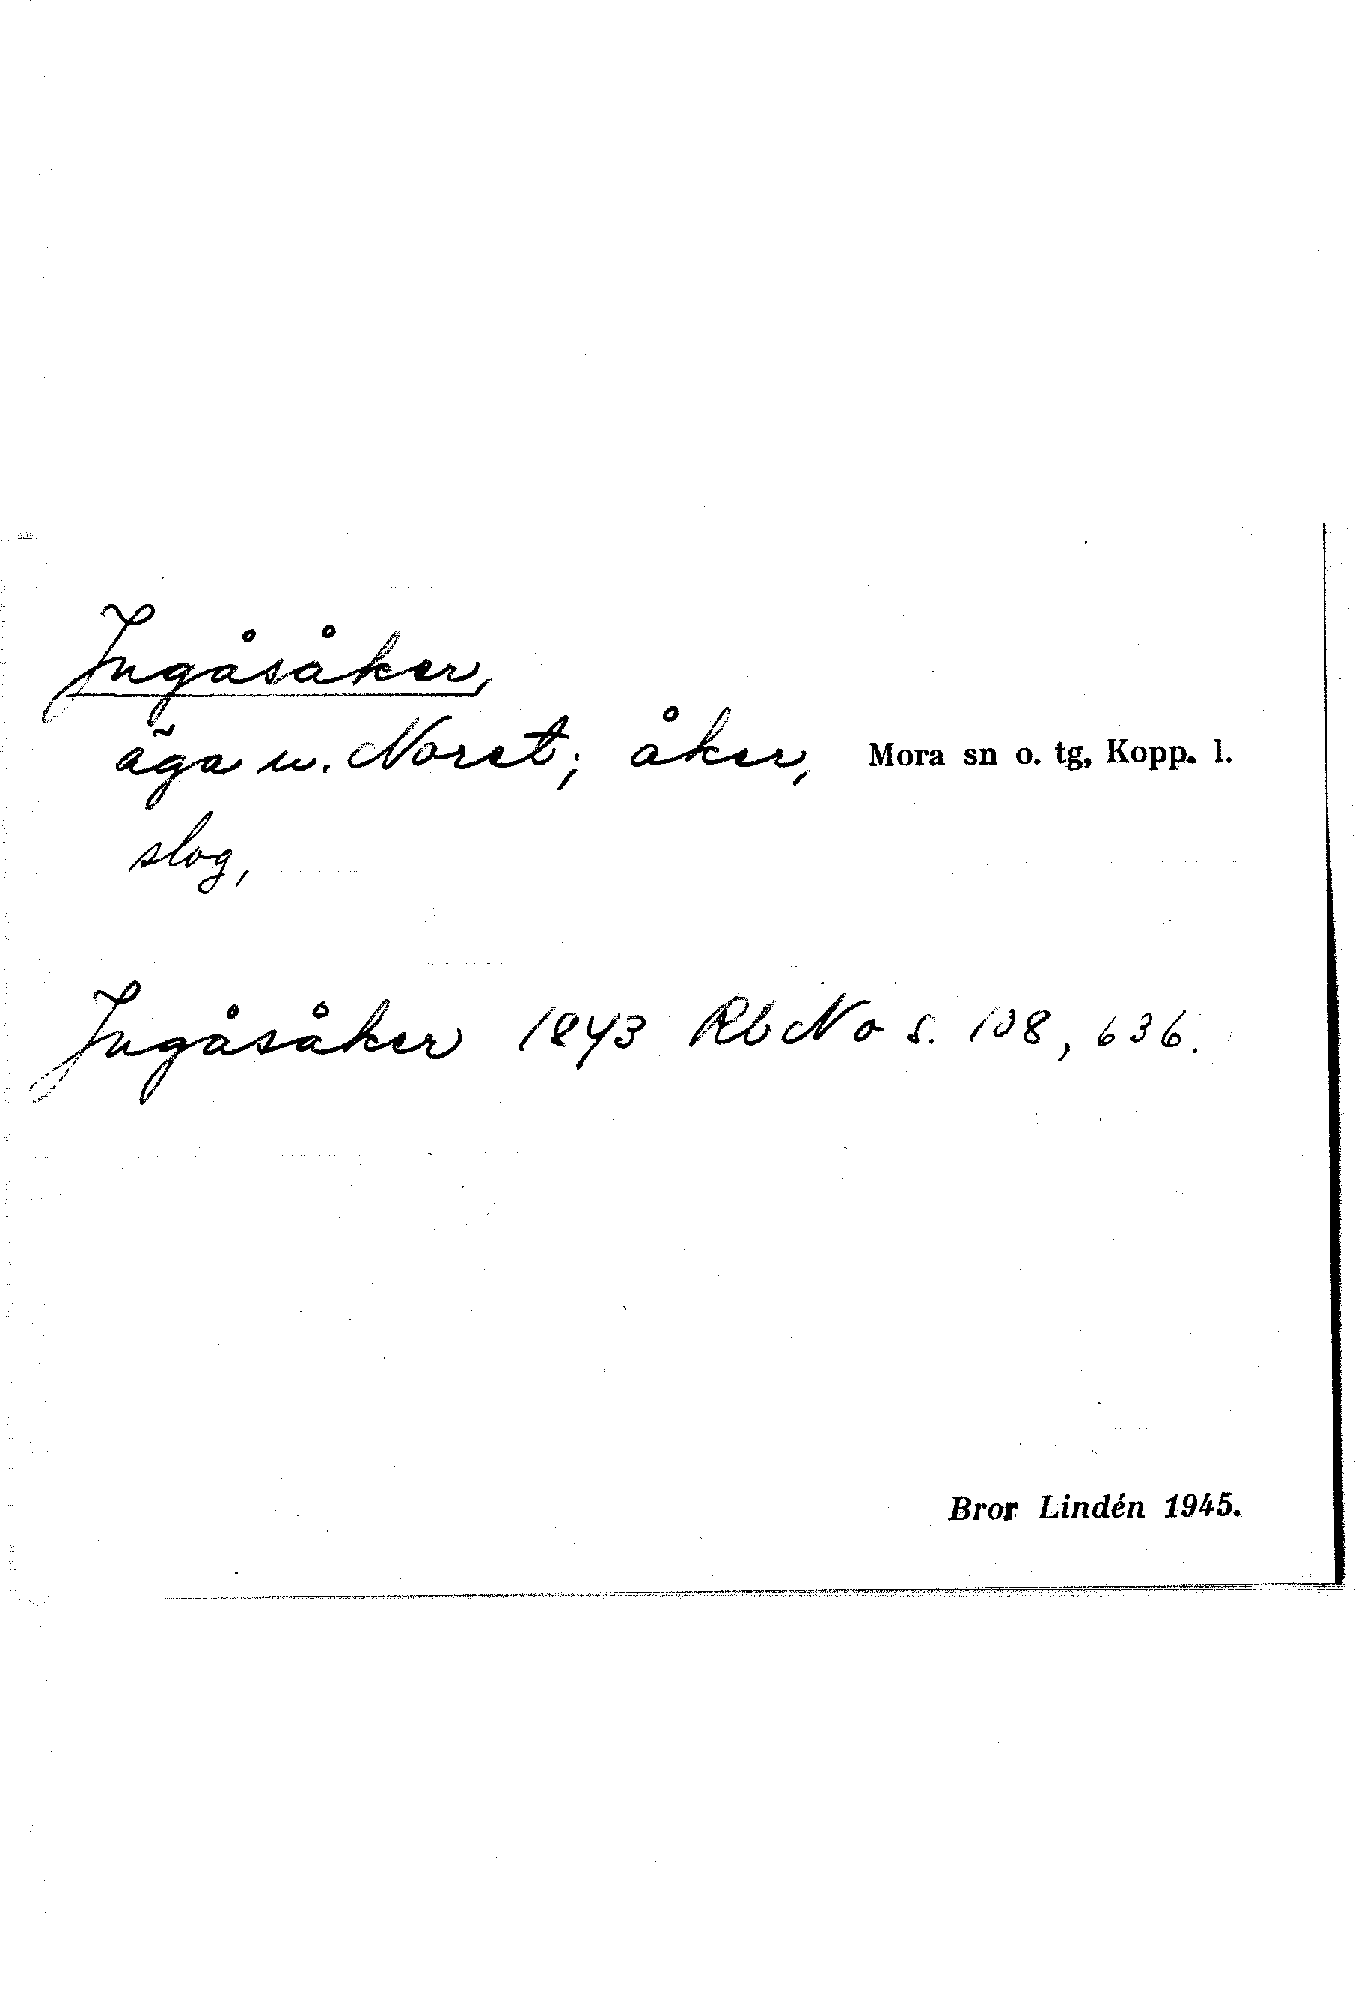 Ingåsåker,
äga u. Noret; åker, Mora sn o. tg, Kopp. l.
slog,
Ingåsåker 1843 Rb No s. 138, 636.
Bror Lindén 1945.